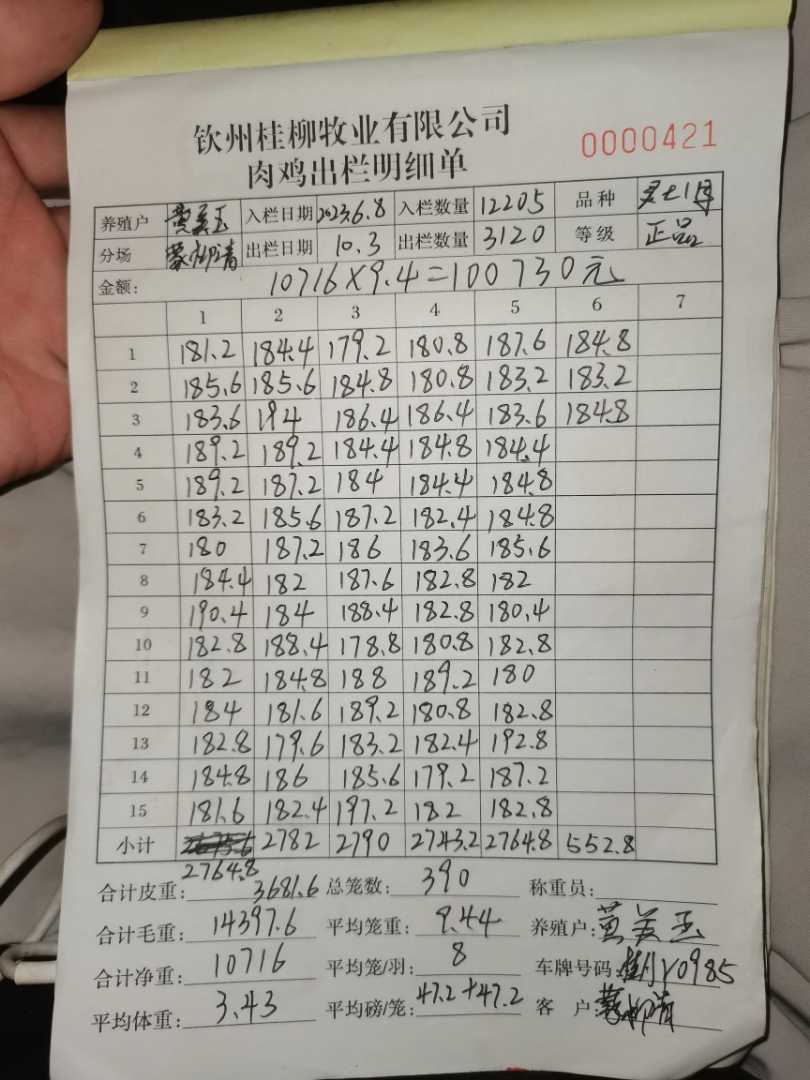 钦州桂柳牧业有限公司
肉鸡出栏明细单
0000421
养殖户 黄美玉 入栏日期 2023.6.8 入栏数量 12205 品种
分场 出栏日期 10.3 出栏数量 3120 等级 正品
金额: 10716×9.4=100730元
1 2 3 4 5 6 7
1 181.2 184.4 179.2 180.8 187.6 184.8
2 185.6 185.6 184.8 180.8 183.2 183.2
3 183.6 194 186.4 186.4 183.6 184.8
4 189.2 189.2 184.4 184.8 184.4
5 189.2 187.2 184 184.4 184.8
6 183.2 185.6 187.2 182.4 184.8
7 180 187.2 186 183.6 185.6
8 184.4 182 187.6 182.8 182
9 190.4 184 188.4 182.8 180.4
10 182.8 188.4 178.8 180.8 182.8
11 182 184.8 188 189.2 180
12 184 181.6 189.2 180.8 182.8
13 182.8 179.6 183.2 182.4 192.8
14 184.8 186 185.6 179.2 187.2
15 181.6 182.4 197.2 182 182.8
小计 2782 2790 2743.2 2764.8 552.8
2764.8
合计皮重: 3681.6 总笼数: 390 称重员:
合计毛重: 14397.6 平均笼重: 9.44 养殖户: 黄美玉
合计净重: 10716 平均笼/羽: 8 车牌号码: 0985
平均体重: 3.43 平均磅/笼: 47.2+47.2 客户: